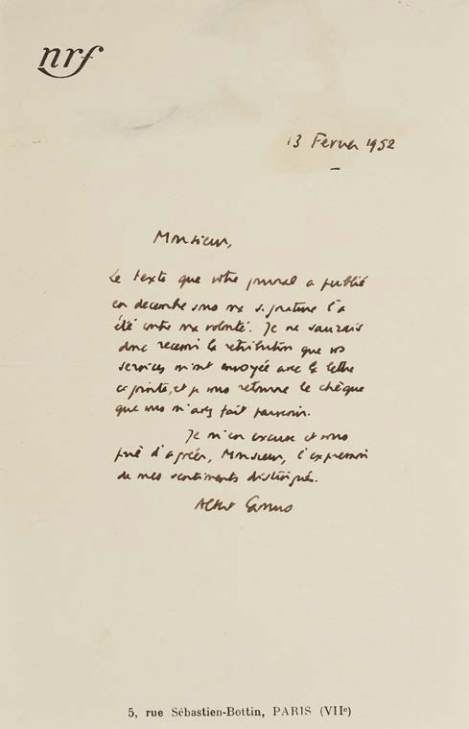 nrf
13 Fevrier 1952
Monsieur,
Le texte que votre journal a publié
en decembre sous ma signature l'a
été contre ma volonté. Je ne saurais
donc recevoir la rétribution que vos
services m'ont envoyée avec la lettre
ci jointe, et je vous retourne le chèque
que vous m'avez fait parvenir.
Je m'en excuse et vous
prie d'agréer, Monsieur, l'expression
de mes sentiments distingués.
Albert Camus
5, rue Sébastien-Bottin, PARIS (VIIe)